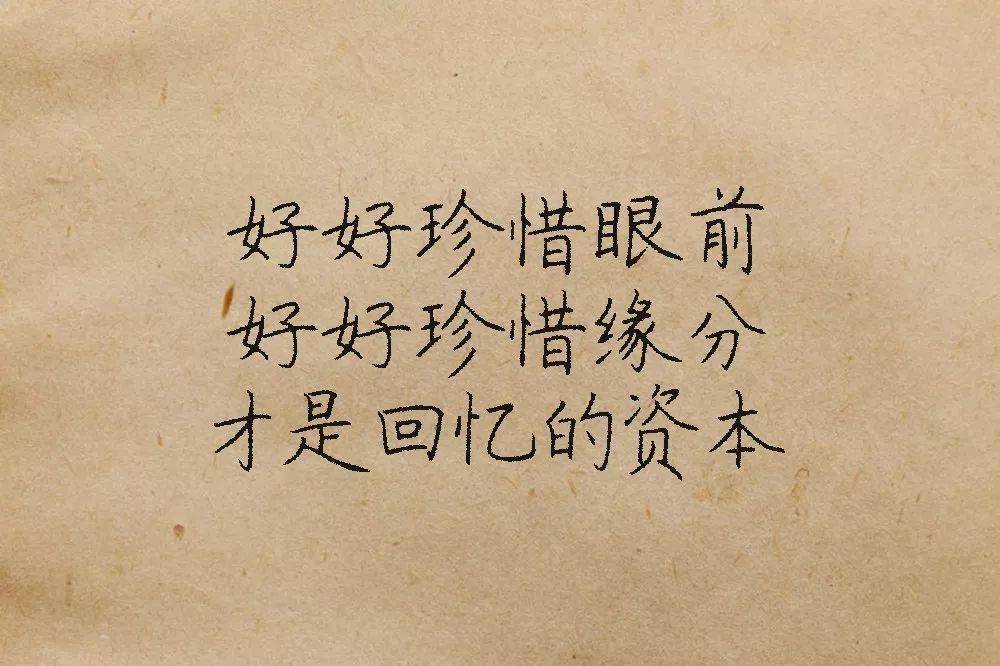 好好珍惜眼前
好好珍惜缘分
才是回忆的资本